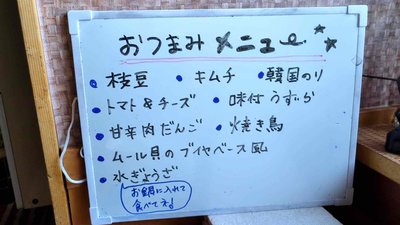 おつまみメニュー
・枝豆 ・キムチ ・韓国のり
・トマト&チーズ ・味付うずら
・甘辛肉だんご ・焼き鳥
・ムール貝のブイヤベース風
・水ぎょうざ
お鍋に入れて
食べてネ!